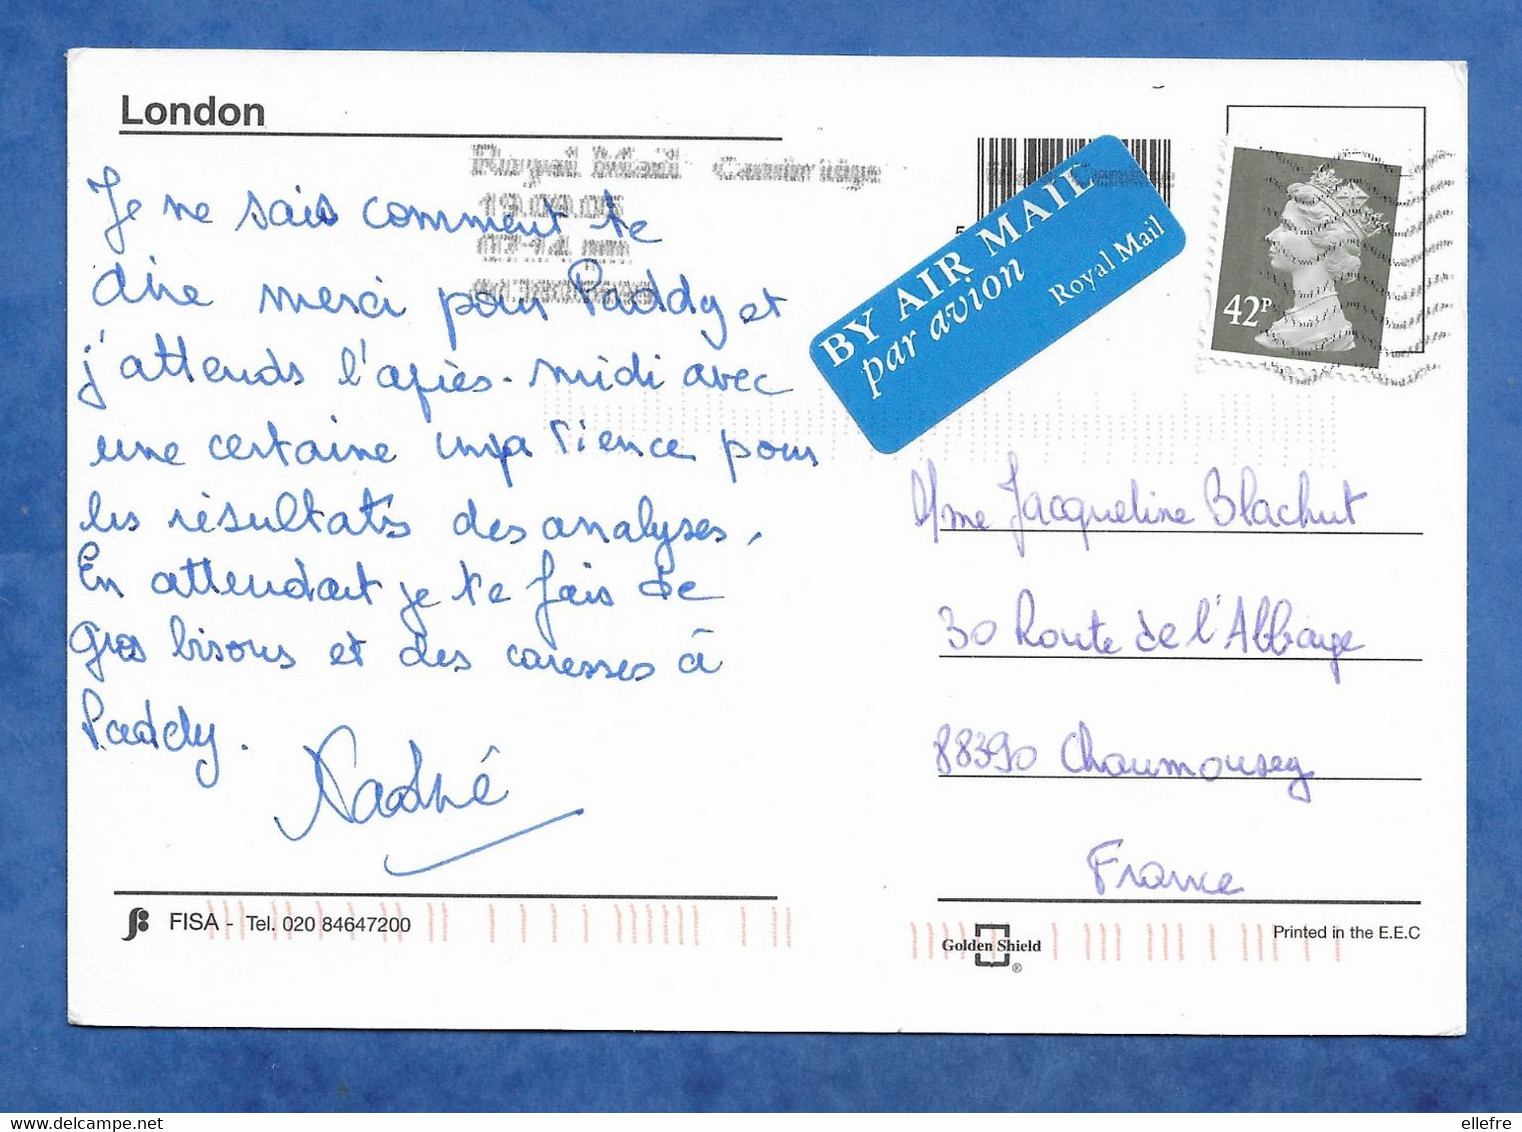 London
Royal Mail Cambridge
Je ne sais comment te
dire merci pour Paddy et
j'attends l'après-midi avec
une certaine impatience pour
les résultats des analyses.
En attendant je te fais de
gros bisous et des caresses à
Paddy.
FISA - Tel. 020 84647200
BY AIR MAIL
par avion
Royal Mail
5
42P
Mme Jacqueline Blachut
30 Route de l'Abbaye
88390 Chaumousey
France
Golden Shield
®
Printed in the E.E.C
ellefre